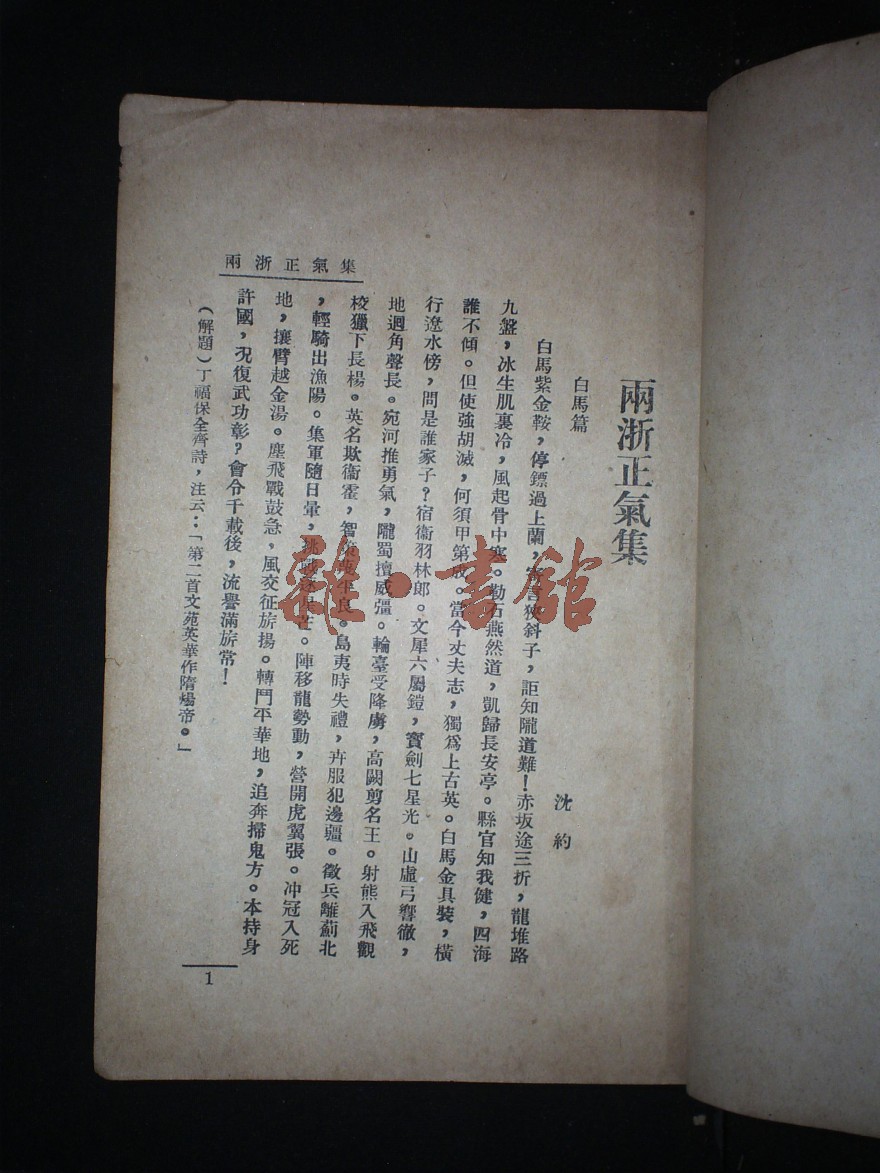 兩浙正氣集
兩浙正氣集
白馬篇
沈約
白馬紫金鞍，停鑣過上蘭，寄言狹斜子，詎知隴道難！赤坂途三折，龍堆路
九盤，冰生肌裏冷，風起骨中寒。勒石燕然道，凱歸長安亭。縣官知我健，四海
誰不傾。但使強胡滅，何須甲第成。當今丈夫志，獨爲上古英。白馬金具裝，橫
行遼水傍，問是誰家子？宿衞羽林郎。文犀六屬鎧，寶劍七星光。山虛弓響徹，
地迥角聲長。宛河推勇氣，隴蜀擅威彊。輪臺受降虜，高闕剪名王。射熊入飛觀
校獵下長楊。英名欺衞霍，智 平良。島夷時失禮，卉服犯邊疆。徵兵離薊北
，輕騎出漁陽。集軍隨日暈，挑戰 。陣移龍勢動，營開虎翼張。冲冠入死
地，攘臂越金湯。塵飛戰鼓急，風交征旂揚。轉鬥平華地，追奔掃鬼方。本持身
許國，况復武功彰？會令千載後，流譽滿旂常！
（解題）丁福保全齊詩，注云：「第二首文苑英華作隋煬帝。」
1
雜·書館